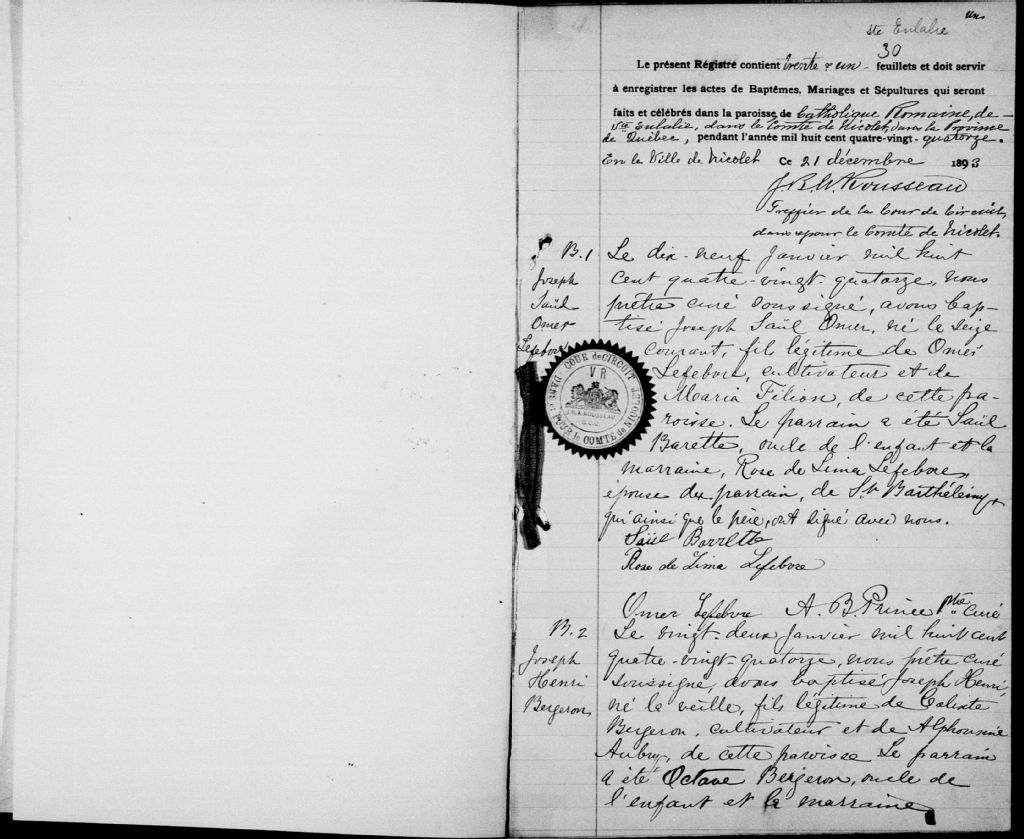 Une
Ste Eulalie
30
Le présent Régistre contient trente & un feuillets et doit servir
à enregistrer les actes de Baptêmes, Mariages et Sépultures qui seront
faits et célébrés dans la paroisse de Catholique Romaine, de
Ste Eulalie, dans le Comté de Nicolet, dans la Province
de Québec, pendant l'année mil huit cent quatre-vingt-quatorze.
En la Ville de Nicolet Ce 21 décembre 1893
J.B.W. Rousseau
Greffier de la Cour de Circuit,
dans & pour le Comté de Nicolet.
B.1
Joseph
Saül
Omer
Lefebvre
Le dix-neuf Janvier mil huit
cent quatre-vingt-quatorze, nous
prêtre curé soussigné, avons bap-
tisé Joseph Saül Omer, né le seize
courant, fils légitime de Omer
Lefebvre, cultivateur et de
Maria Filion, de cette pa-
roisse. Le parrain a été Saül
Barette, oncle de l'enfant et la
marraine, Rose de Lima Lefebvre,
épouse du parrain, de St Barthélémy
qui ainsi que le père, ont signé avec nous.
Saül Barrette
Rose de Lima Lefebvre
Omer Lefebvre A. B. Prince Ptre Curé
COUR de CIRCUIT
DANS et POUR le COMTÉ de NICOLET
V R
ROUSSEAU
B.2
Joseph
Henri
Bergeron
Le vingt-deux Janvier mil huit cent
quatre-vingt-quatorze, nous prêtre curé
soussigné, avons baptisé Joseph Henri,
né la veille, fils légitime de Calixte
Bergeron, cultivateur et de Alphonsine
Aubry, de cette paroisse Le parrain
a été Octave Bergeron, oncle de
l'enfant et la marraine